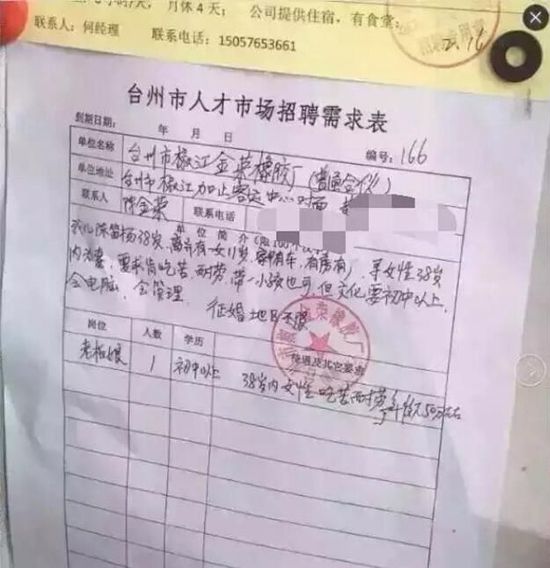 月休4天; 公司提供住宿,有食堂;
联系人:何经理 联系电话:15057653661
2.16
台州市人才市场招聘需求表
到期日期: 年 月 日 编号:166
单位名称 台州市椒江金荣橡胶厂(普通合伙)
单位地址 台州市椒江加止客运中心对面
联系人 陈金荣 联系电话
单位简介
38岁,离异有一女11岁,家中有车,有房,寻女性38岁
内为妻,要求肯吃苦耐劳,带一小孩也可,但文化要初中以上,
会电脑,会管理. 征婚地区不限
岗位 人数 学历 待遇及其它要求
老板娘 1 初中以上 38岁内女性吃苦耐劳年收入50万左右